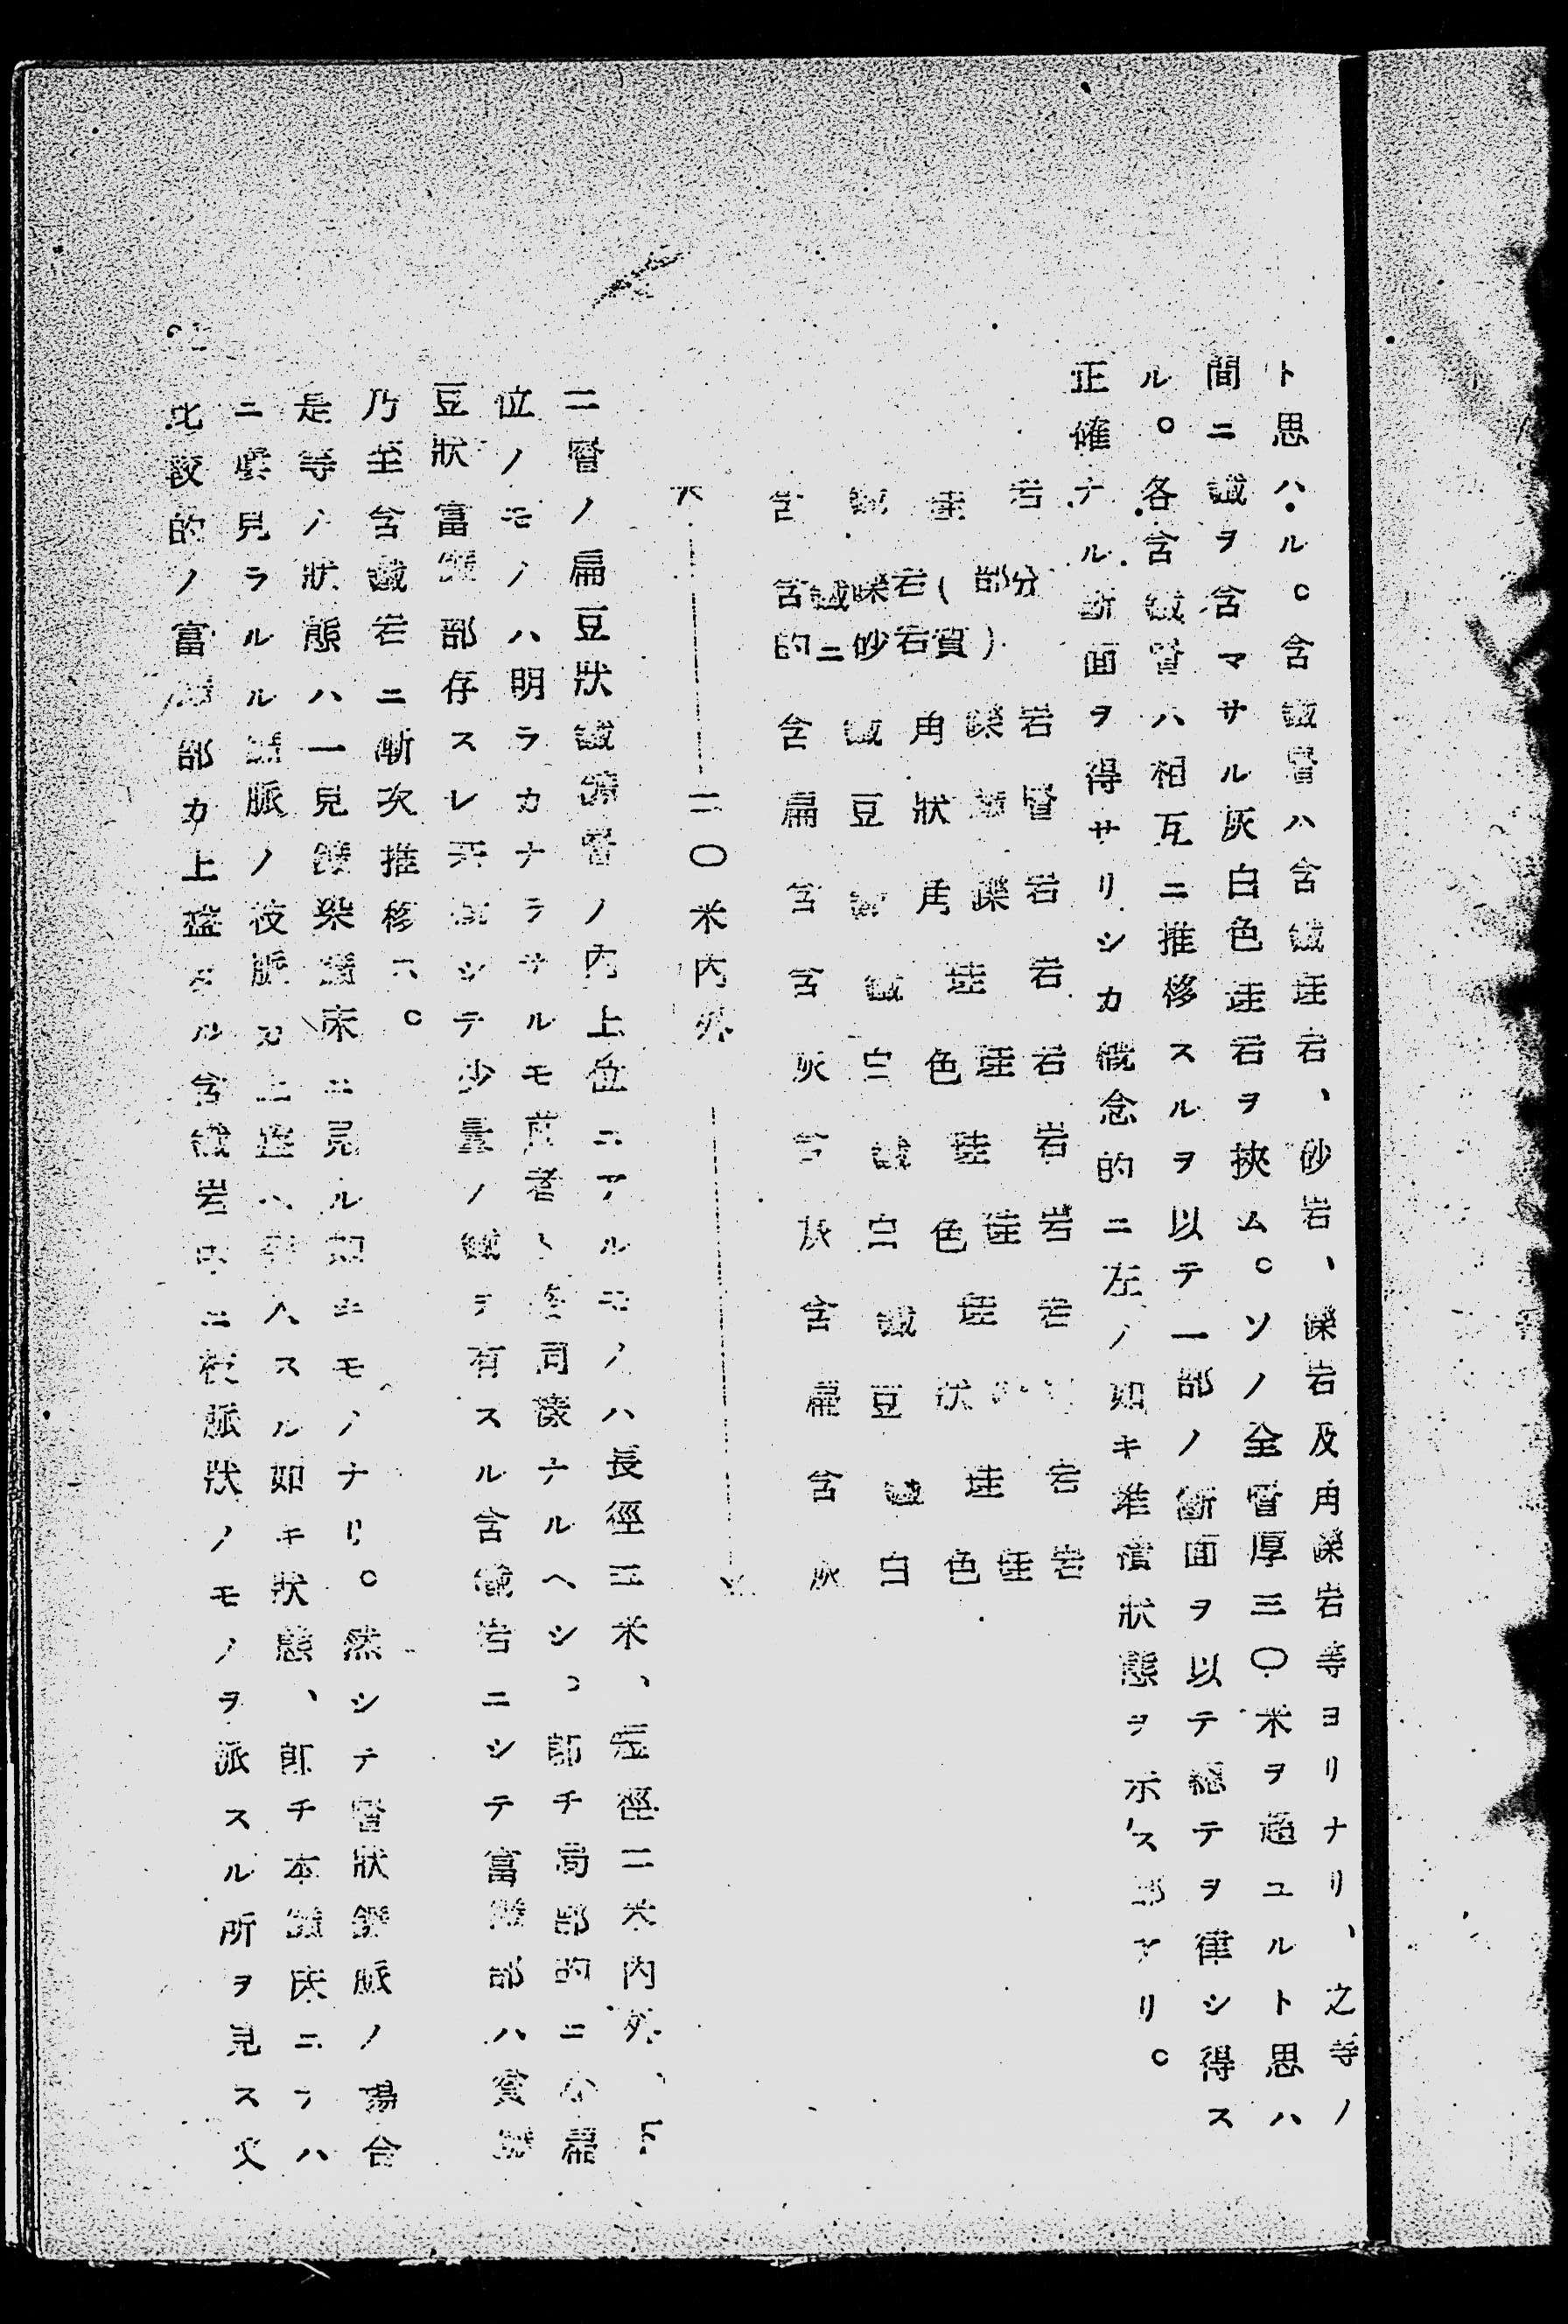 ト思ハル。含鐵層ハ含鐵珪岩、砂岩、礫岩及角礫岩等ヨリナリ、之等ノ
間ニ鐵ヲ含マサル灰白色珪岩ヲ挾ム。ソノ全層厚三〇米ヲ超ユルト思ハ
ル。各含鐵層ハ相互ニ推移スルヲ以テ一部ノ斷面ヲ以テ總テヲ律シ得ス
正確ナル斷面ヲ得サリシカ概念的ニ左ノ如キ堆積狀態ヲ示ス部アリ。
含鐵珪岩
含鐵礫岩(部分
的ニ砂岩質)
含鐵角礫岩
扁豆狀鐵層
含鐵角礫岩
含鐵珪岩
灰白色珪岩
含鐵珪岩
灰白色珪岩
含鐵珪岩
扁豆狀
含鐵珪岩
灰白色珪岩
二〇米內外
二層ノ扁豆狀鐵鑛層ノ內上位ニアルモノハ長徑三米、短徑二米內外、下
位ノモノハ明ラカナラサルモ前者ト同樣ナルヘシ。卽チ局部的ニ小扁
豆狀富鑛部存スレ共 シテ少量ノ鐵ヲ有スル含鐵岩ニシテ富鑛部ハ貧鑛
乃至含鐵岩ニ漸次推移ス。
是等ノ狀態ハ一見鑛染鑛床ニ見ル如キモノナリ。然シテ層狀鑛脈ノ場合
ニ屢見ラルル鑛脈ノ枝脈カ上盤ヘ 入スル如キ狀態、卽チ本鑛床ニテハ
比較的ノ富鑛部カ上盤タル含鐵岩中ニ枝脈狀ノモノヲ派スル所ヲ見ス又